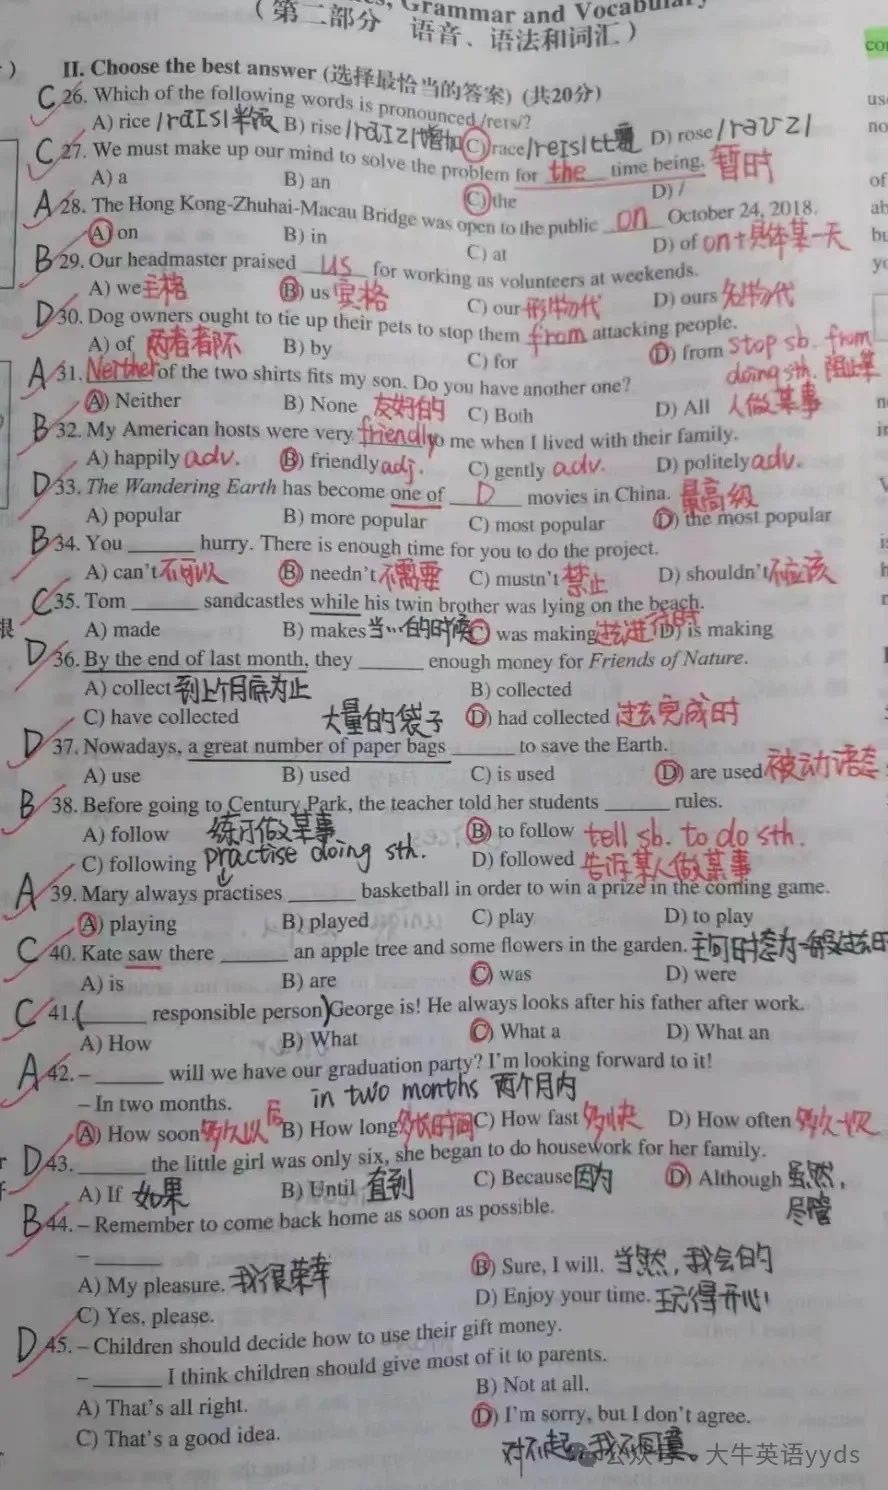 Grammar and Vocabulary
(第二部分 语音、语法和词汇)
II. Choose the best answer (选择最恰当的答案) (共20分)
C 26. Which of the following words is pronounced /reɪs/?
A) rice /raɪs/ 半夜 B) rise /raɪz/ 增加 C) race /reɪs/ 比赛 D) rose /rəʊz/
C 27. We must make up our mind to solve the problem for the time being. 暂时
A) a B) an C) the D) /
A 28. The Hong Kong-Zhuhai-Macau Bridge was open to the public on October 24, 2018.
A) on B) in C) at D) of on+具体某一天
B 29. Our headmaster praised us for working as volunteers at weekends.
A) we 主格 B) us 宾格 C) our 形物代 D) ours 名物代
D 30. Dog owners ought to tie up their pets to stop them from attacking people.
A) of 两者都不 B) by C) for D) from stop sb. from
doing sth. 阻止某
A 31. Neither of the two shirts fits my son. Do you have another one?
A) Neither B) None 友好的 C) Both D) All 人做某事
B 32. My American hosts were very friendly to me when I lived with their family.
A) happily adv. B) friendly adj. C) gently adv. D) politely adv.
D 33. The Wandering Earth has become one of D movies in China. 最高级
A) popular B) more popular C) most popular D) the most popular
B 34. You ______ hurry. There is enough time for you to do the project.
A) can't 不可以 B) needn't 不需要 C) mustn't 禁止 D) shouldn't 不应该
C 35. Tom ______ sandcastles while his twin brother was lying on the beach.
A) made B) makes 当…的时候 C) was making 过去进行时 D) is making
D 36. By the end of last month, they ______ enough money for Friends of Nature.
A) collect 到上个月底为止 B) collected
C) have collected 大量的袋子 D) had collected 过去完成时
D 37. Nowadays, a great number of paper bags ______ to save the Earth.
A) use B) used C) is used D) are used 被动语态
B 38. Before going to Century Park, the teacher told her students ______ rules.
A) follow 练习做某事 B) to follow tell sb. to do sth.
C) following practise doing sth. D) followed 告诉某人做某事
A 39. Mary always practises ______ basketball in order to win a prize in the coming game.
A) playing B) played C) play D) to play
C 40. Kate saw there ______ an apple tree and some flowers in the garden. 主句时态为一般过去时
A) is B) are C) was D) were
C 41. (______ responsible person) George is! He always looks after his father after work.
A) How B) What C) What a D) What an
A 42. – ______ will we have our graduation party? I'm looking forward to it!
– In two months. in two months 两个月内
A) How soon 多久以后 B) How long 多长时间 C) How fast 多快 D) How often 多久一次
D 43. ______ the little girl was only six, she began to do housework for her family.
A) If 如果 B) Until 直到 C) Because 因为 D) Although 虽然,
尽管
B 44. – Remember to come back home as soon as possible.
– ______
A) My pleasure. 我很荣幸 B) Sure, I will. 当然,我会的
C) Yes, please. D) Enjoy your time. 玩得开心
D 45. – Children should decide how to use their gift money.
– ______ I think children should give most of it to parents.
A) That's all right. B) Not at all.
C) That's a good idea. D) I'm sorry, but I don't agree.
对不起,我不同意。
公众号 · 大牛英语yyds